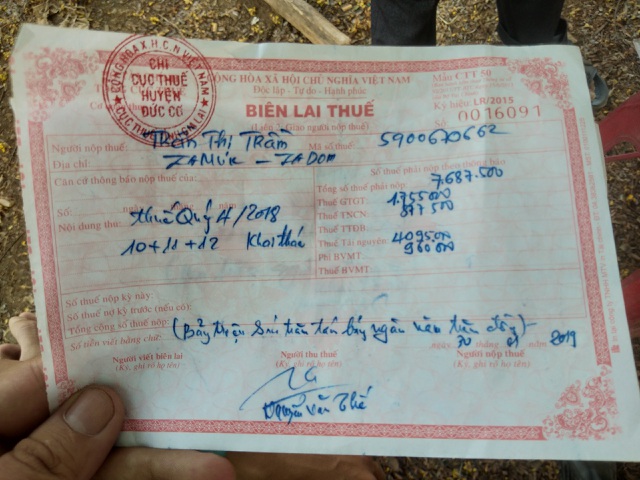 CỘNG HÒA X.H.C.N VIỆT NAM
CHI
CỤC THUẾ
HUYỆN
ĐỨC CƠ
CỘNG HÒA XÃ HỘI CHỦ NGHĨA VIỆT NAM
Độc lập - Tự do - Hạnh phúc
Mẫu CTT 50
Ký hiệu: LR/2015
Số: 0016091
BIÊN LAI THUẾ
(Liên 2: Giao người nộp thuế)
Người nộp thuế: Trần Thị Trâm Mã số thuế: 5900670662
Địa chỉ: IAMÚK - IADOM
Căn cứ thông báo nộp thuế của:
Số: ngày
Nội dung thu: thuế Quý 4/2018
10+11+12 Khoi thác
Số thuế phải nộp theo thông báo
Tổng số thuế phải nộp: 7.687.500
Thuế GTGT: 1.755.000
Thuế TNCN: 877.500
Thuế TTĐB:
Thuế Tài nguyên: 4.095.000
Phí BVMT: 960.000
Thuế BVMT:
Số thuế nộp kỳ này:
Số thuế nợ kỳ trước (nếu có):
Tổng cộng số thuế nộp:
Số tiền viết bằng chữ: (Bảy triệu sáu trăm tám bảy ngàn năm trăm đồng)
ngày 30 01 năm 2019
Người viết biên lai
(Ký, ghi rõ họ tên)
Người thu thuế
(Ký, ghi rõ họ tên)
Người nộp thuế
(Ký, ghi rõ họ tên)
Nguyễn Văn Thế